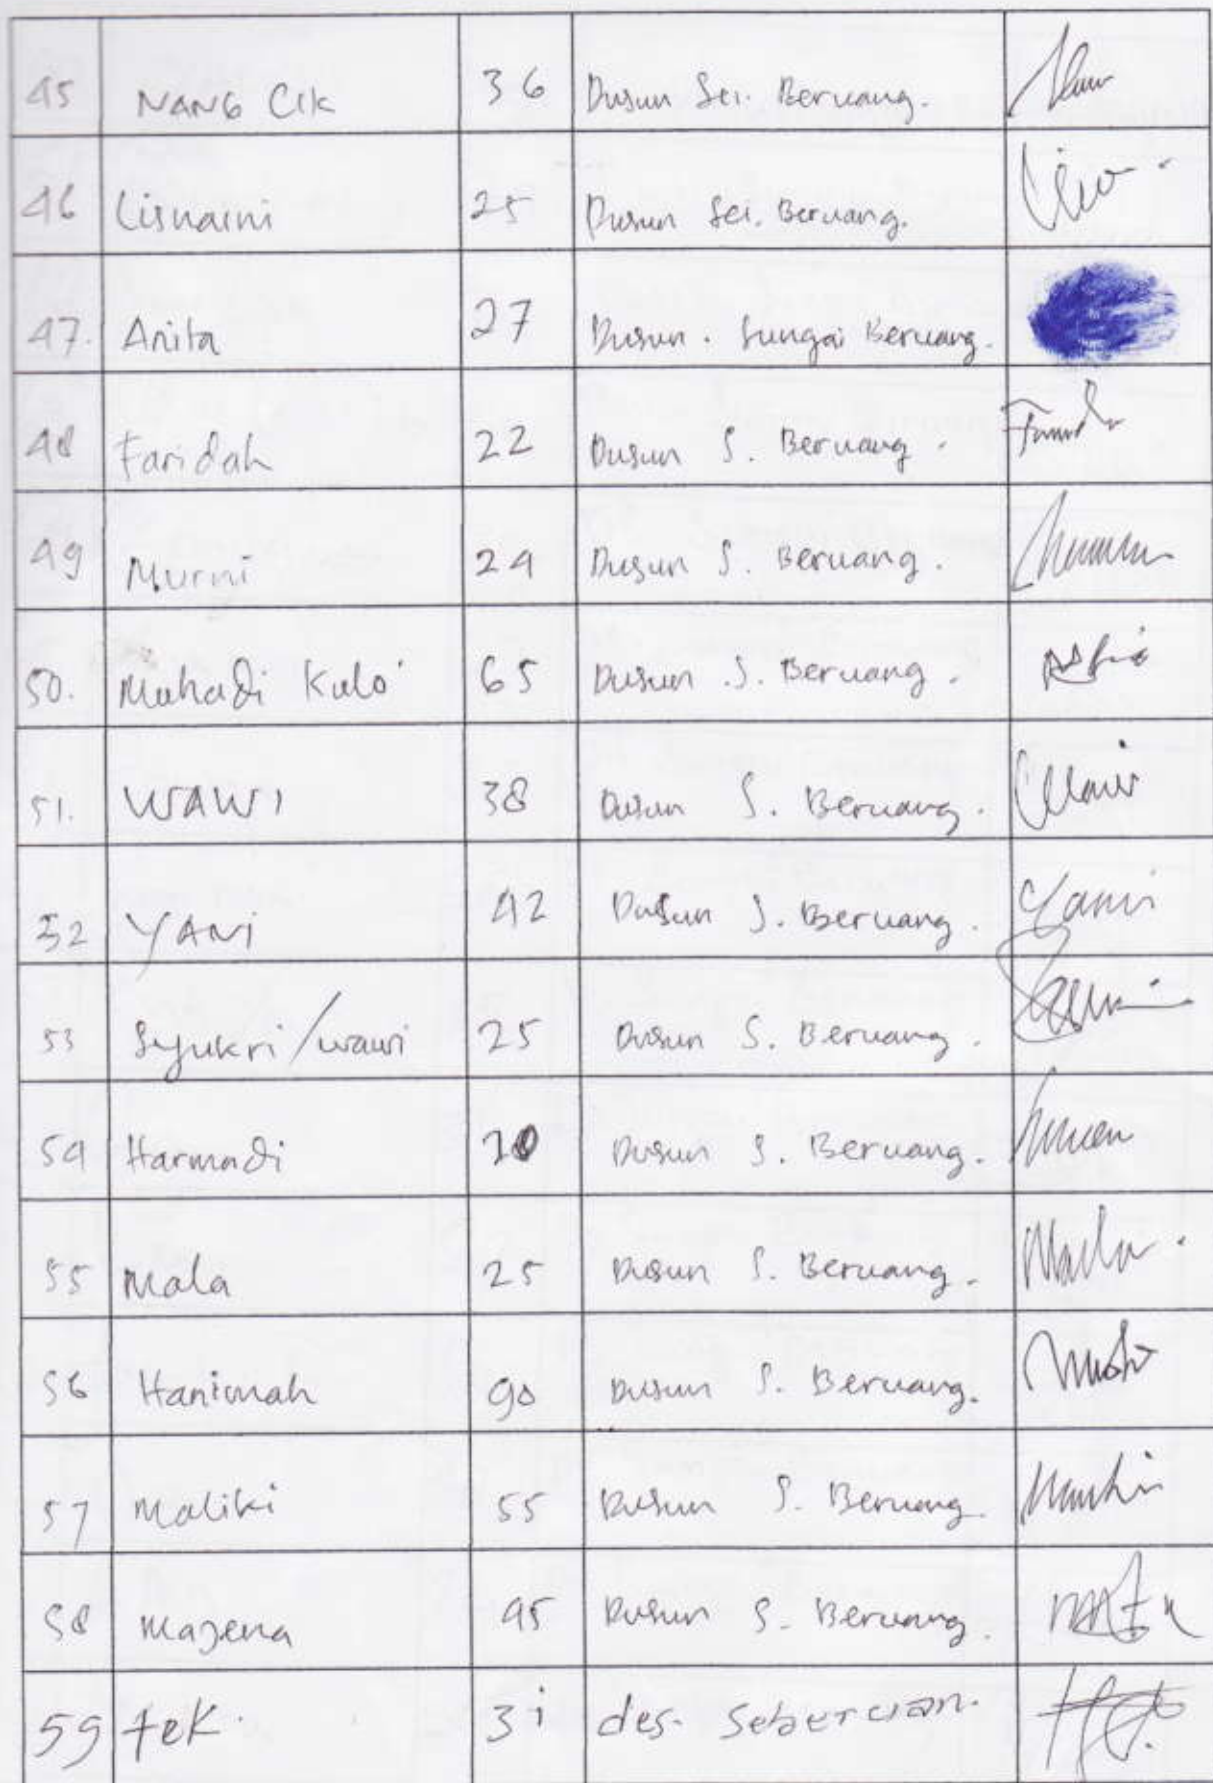 45 NANG Cik 36 Dusun Sei. Beruang.
46 Lisnaini 25 Dusun Sei. Beruang.
47. Anita 27 Dusun. Sungai Beruang.
48 Faridah 22 Dusun S. Beruang.
49 Murni 24 Dusun S. Beruang.
50. Muhadi Kulo' 65 Dusun S. Beruang.
51. WAWI 38 Dusun S. Beruang.
52 YANI 42 Dusun S. Beruang. Yani
53 Syukri/wawi 25 Dusun S. Beruang.
54 Harmadi Dusun S. Beruang.
55 Mala 25 Dusun S. Beruang.
56 Hanimah 90 Dusun S. Beruang.
57 Maliki 55 Dusun S. Beruang.
58 Majena 45 Dusun S. Beruang.
59 tek. 31 des. Seberuan.